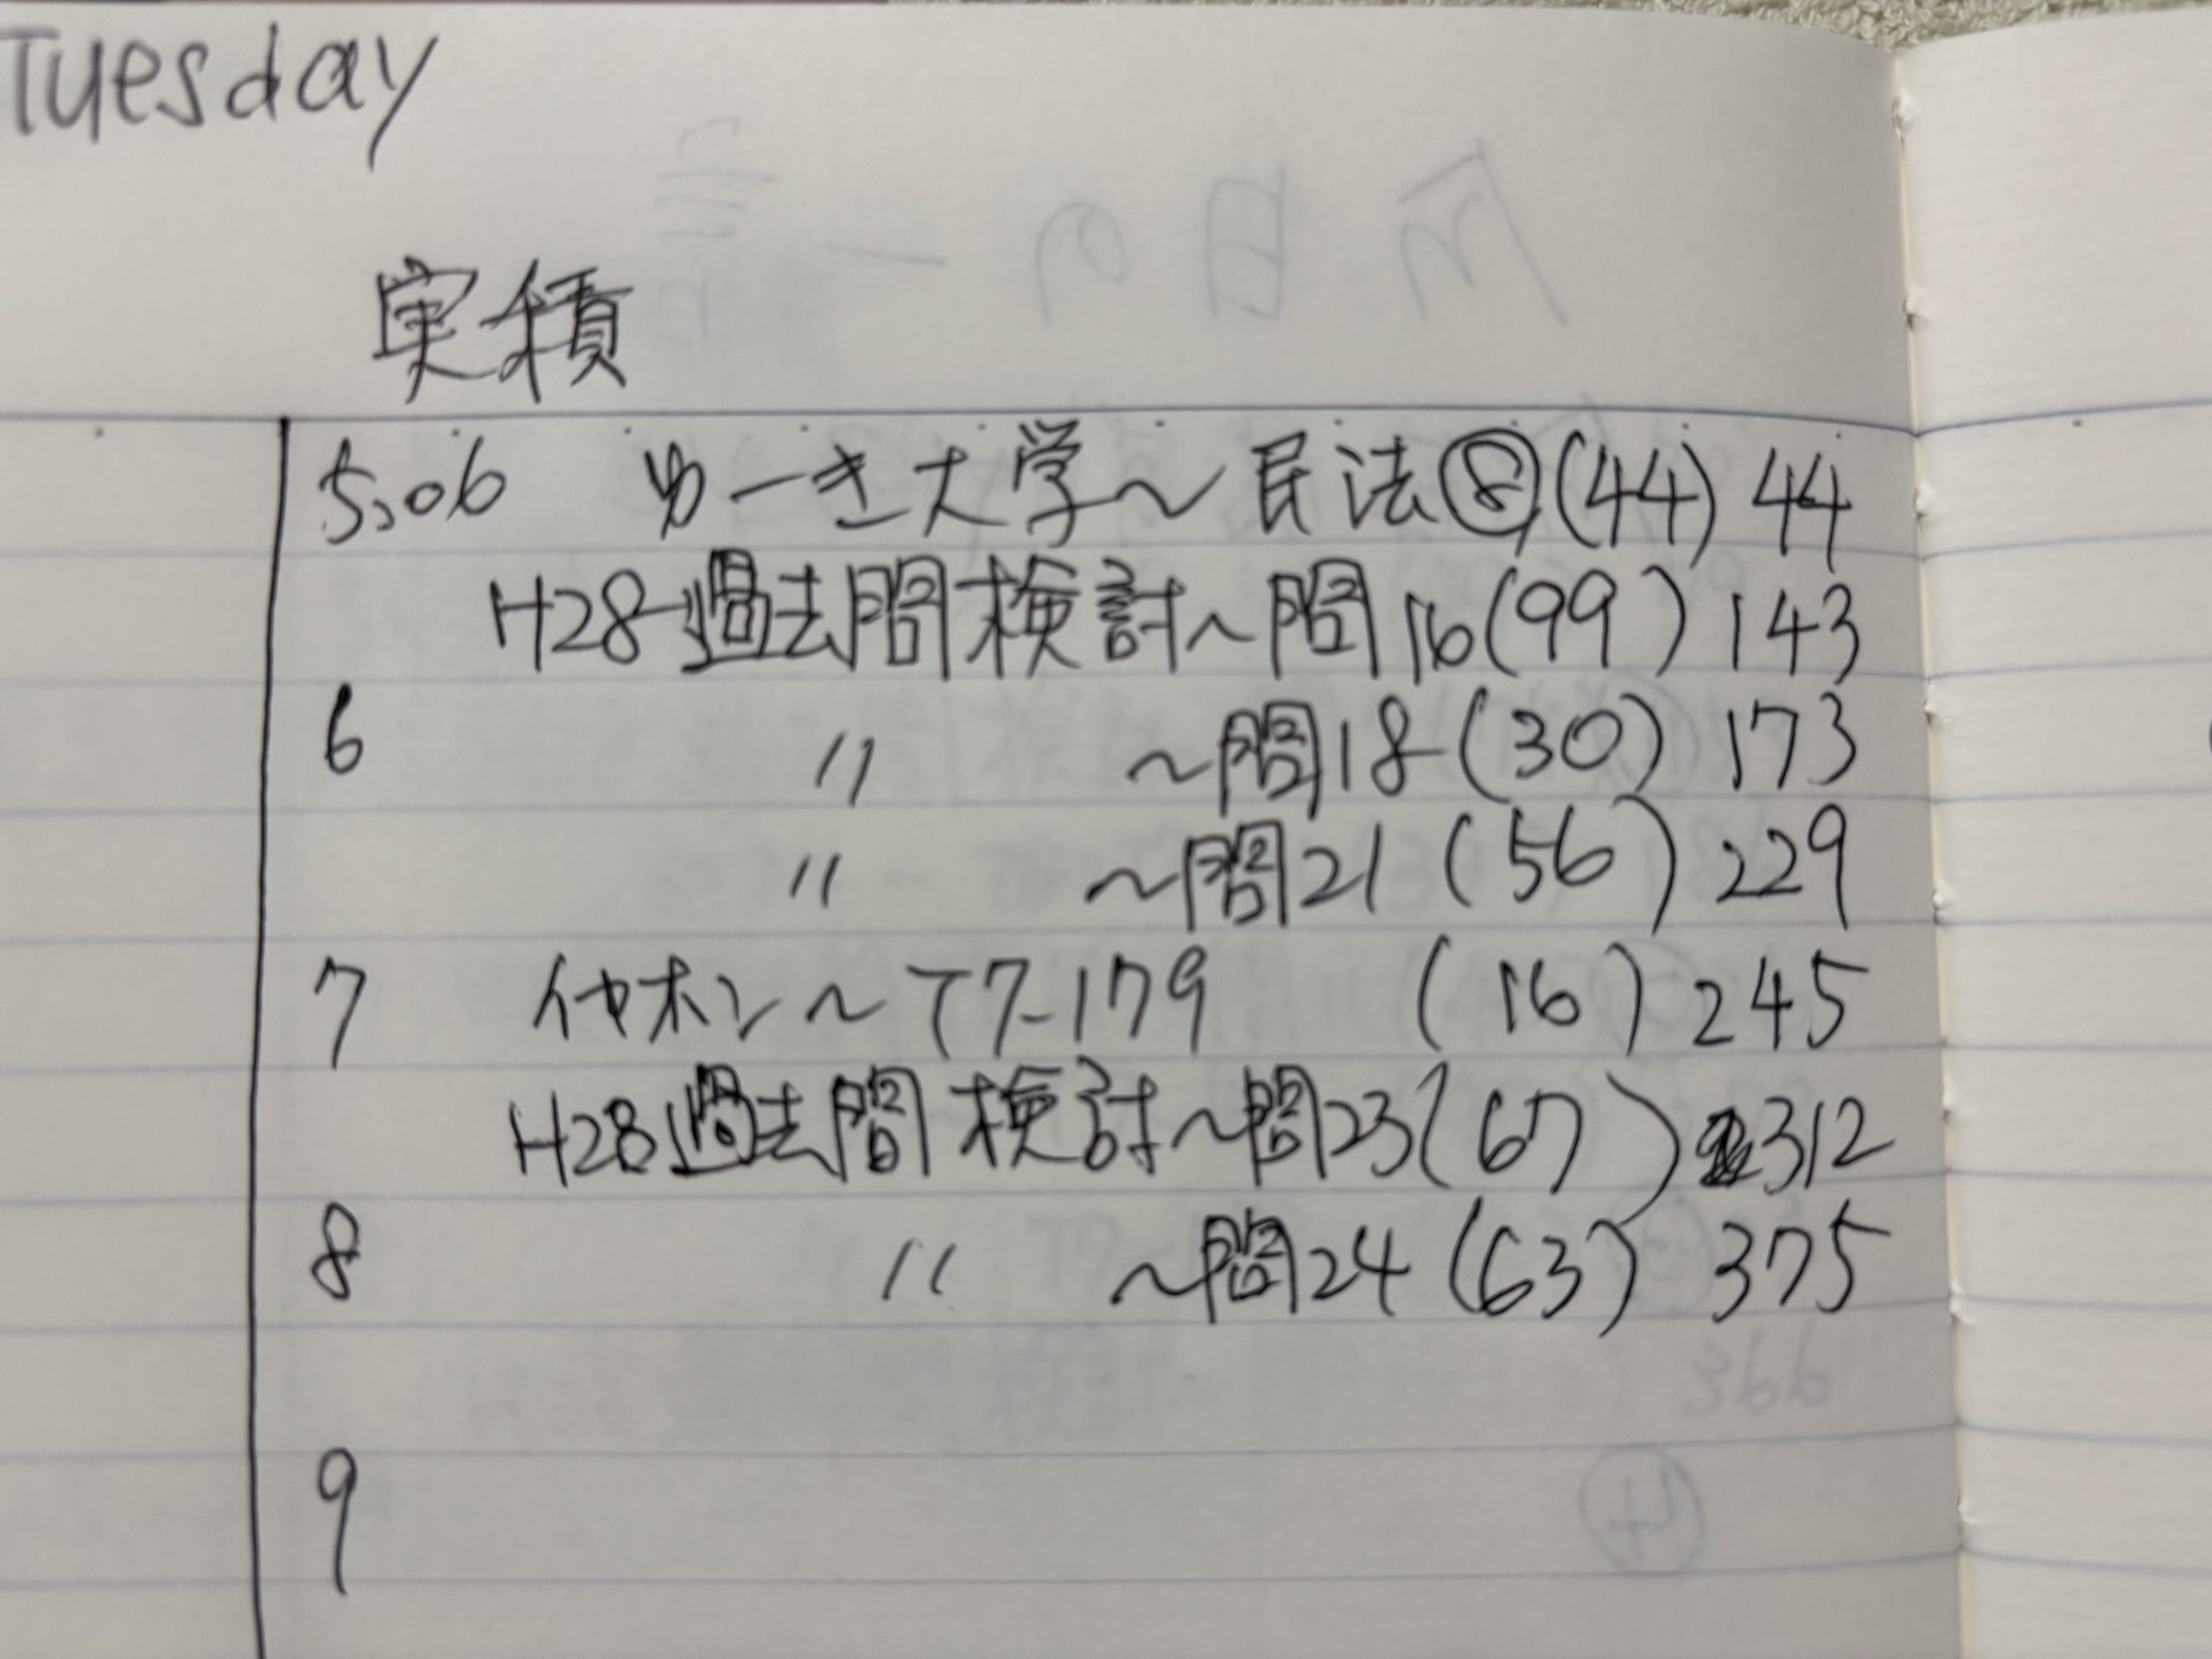 Tuesday
実積
5:06 ゆーき大学〜民法⑧(44) 44
H28過去問検討〜問16(99) 143
6 〃 〜問18(30) 173
〃 〜問21(56) 229
7 イヤホン〜T7-179 (16) 245
H28過去問検討〜問23(67) 312
8 〃 〜問24(63) 375
9